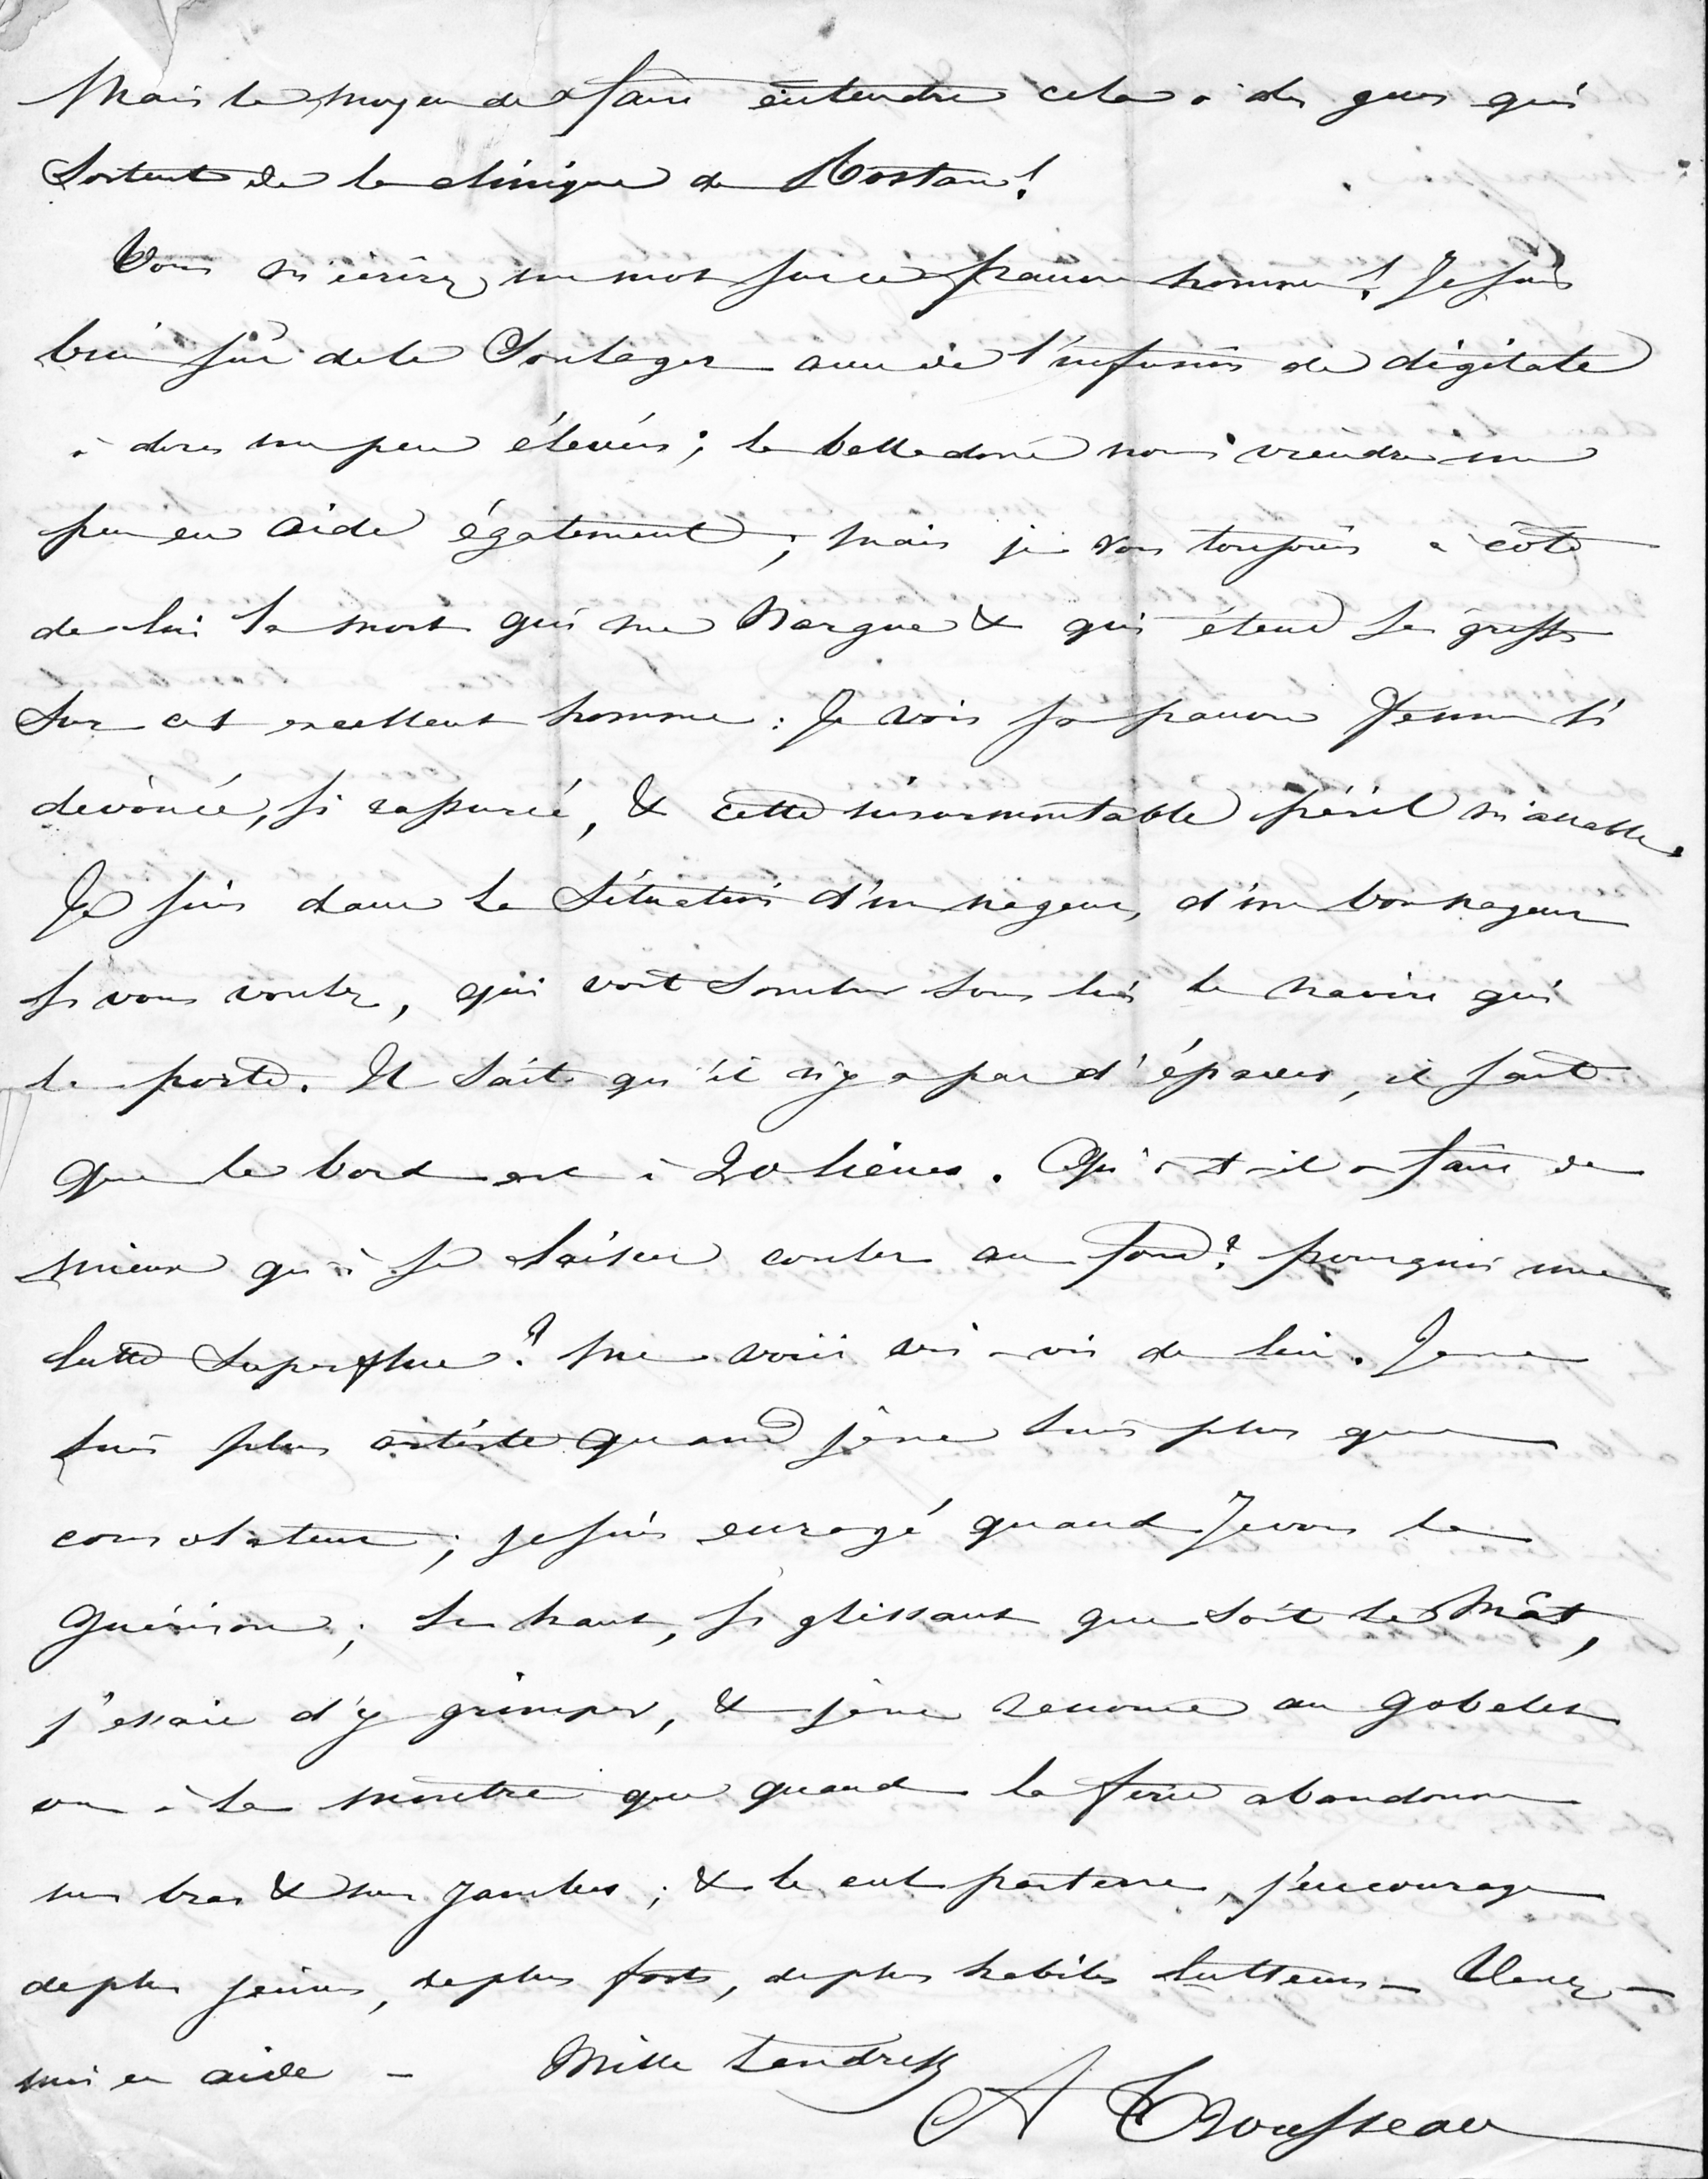 Mais le moyen de faire entendre cela à des gens qui
sortent de la clinique de Rostan!
Vous m'écrirez un mot sur ce pauvre homme! Je suis
bien sûr de le soulager avec de l'infusion de digitale
à doses un peu élevées; la belladone nous viendra un
peu en aide également; mais je vois toujours à côté
de lui la mort qui me nargue & qui étend ses griffes
sur cet excellent homme: Je vois sa pauvre femme si
dévouée, si rassurée, & cette insurmontable péril m'accable.
Je suis dans la situation d'un nageur, d'un bon nageur
si vous voulez, qui voit sombrer sous lui le navire qui
le porte. Il sait qu'il n'y a pas d'épaves, il sait
que le bord est à 20 lieues. Qu'a-t-il à faire de
mieux qu'à se laisser couler au fond? pourquoi une
lutte superflue? me voici vis à vis de lui. Je ne
suis plus artiste quand je ne suis plus que
consolateur; je suis enragé quand je vois la
guérison; si haut, si glissant que soit le mât,
j'essaie d'y grimper, & je ne renonce au gobelet
ou à la montre que quand la force abandonne
mes bras & mes jambes; & le cul par terre, j'encourage
de plus jeunes, de plus forts, de plus habiles lutteurs – Venez-
moi en aide – Mille tendresses
A Trousseau